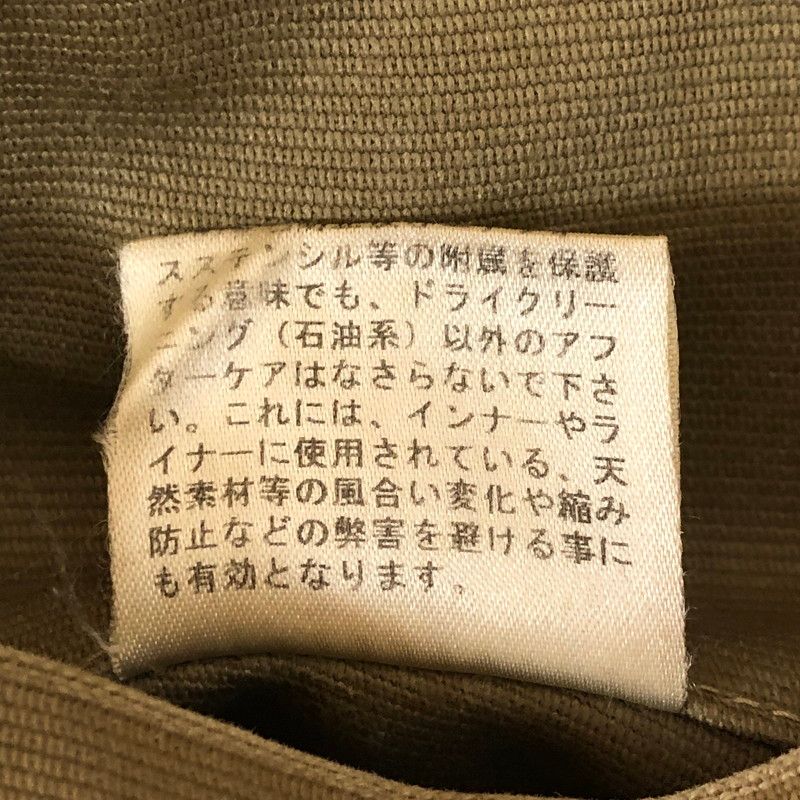 スステンシル等の附属を保護
する意味でも、ドライクリー
ニング（石油系）以外のアフ
ターケアはなさらないで下さ
い。これには、インナーやラ
イナーに使用されている、天
然素材等の風合い変化や縮み
防止などの弊害を避ける事に
も有効となります。